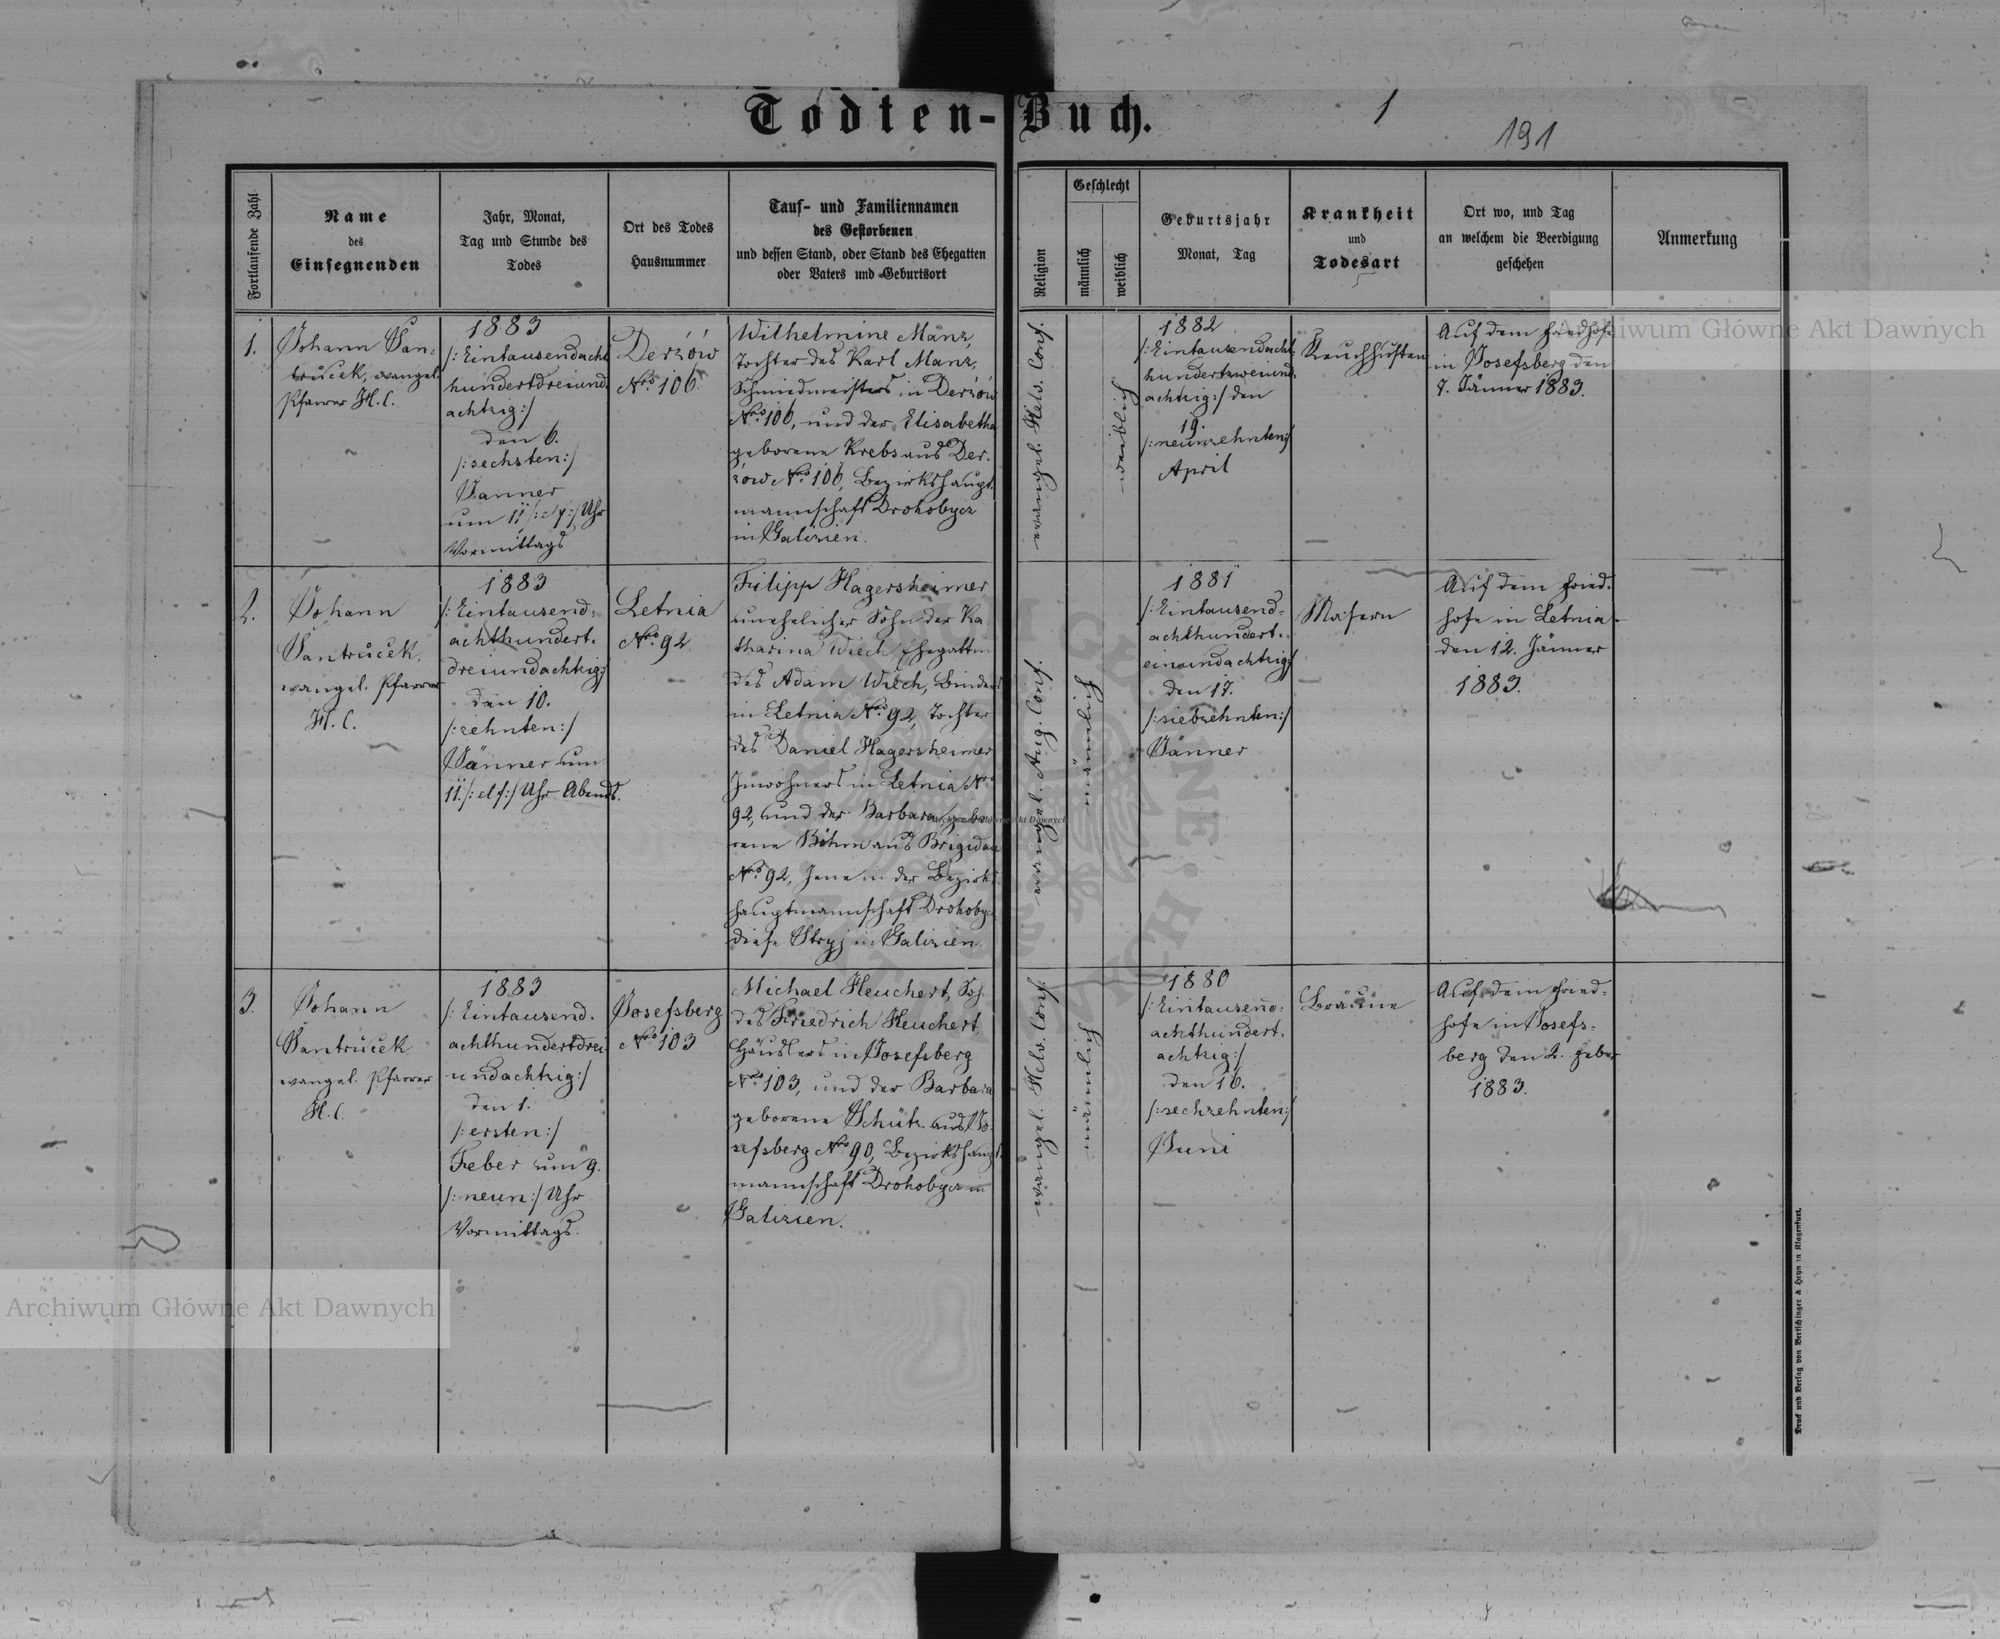 Todten-Buch.
1
191
Fortlaufende Zahl
Name
des
Einsegnenden
Jahr, Monat,
Tag und Stunde des
Todes
Ort des Todes
Hausnummer
Tauf- und Familiennamen
des Gestorbenen
und dessen Stand, oder Stand des Ehegatten
oder Vaters und Geburtsort
Religion
Geschlecht
männlich
weiblich
Geburtsjahr
Monat, Tag
Krankheit
und
Todesart
Ort wo, und Tag
an welchem die Beerdigung
geschehen
Anmerkung
1.
Johann Šan-
truček, evangel.
Pfarrer H. C.
1883
/:Eintausendacht
hundertdreiund
achtzig:/
den 6.
/:sechsten:/
Jänner
um 11 /:elf:/ Uhr
Vormittags
Derżów
Nro 106
Wilhelmine Manz,
Tochter des Karl Manz,
Schmiedmeisters in Derżów
Nro 106, und der Elisabetha
geborene Krebs aus Der-
żów Nro 106, Bezirkshaupt-
mannschaft Drohobycz
in Galizien.
evangel. Helv. Conf.
weiblich
1882
/:Eintausendacht-
hundertzweiund-
achtzig:/ den
19.
/:neunzehnten:/
April
Keuchhusten
Auf dem Friedhofe
in Josefsberg den
8. Jänner 1883.
2.
Johann
Šantruček,
evangel. Pfarrer
H. C.
1883
/:Eintausend-
achthundert-
dreiundachtzig:/
den 10.
/:zehnten:/
Jänner um
11 /:elf:/ Uhr Abends.
Letnia
Nro 92
Filipp Hagersheimer,
unehelicher Sohn der Ka
tharina Wiech Ehegattin
des Adam Wiech, Binders
in Letnia Nro 92, Tochter
des Daniel Hagersheimer
Inwohners in Letnia Nro
92, und der Barbara gebo
rene Böhm aus Brigidau
Nro 92, Jene in der Bezirks
hauptmannschaft Drohobycz
diese Stryj in Galizien.
evangel. Augs. Conf.
männlich
1881
/:Eintausend-
achthundert-
einundachtzig:/
den 17.
/:siebzehnten:/
Jänner
Masern
Auf dem Fried-
hofe in Letnia
den 12. Jänner
1883.
3.
Johann
Šantruček
evangel. Pfarrer
H. C.
1883
/:Eintausend-
achthundertdrei
undachtzig:/
den 1.
/:ersten:/
Feber um 9.
/:neun:/ Uhr
Vormittags.
Josefsberg
Nro 103
Michael Heuchert, Soh
des Friedrich Heuchert
Häuslers in Josefsberg
Nro 103, und der Barbara
geborene Schütz aus Jo-
sefsberg Nro 90, Bezirkshaupt
mannschaft Drohobycz in
Galizien.
evangel. Helv. Conf.
männlich
1880
/:Eintausend-
achthundert-
achtzig:/
den 16.
/:sechzehnten:/
Juni
Bräune
Auf dem Fried-
hofe in Josefs-
berg den 2. Feber
1883.
Druck und Verlag von Bertschinger & Heyn in Klagenfurt.
Archiwum Główne Akt Dawnych
Archiwum Główne Akt Dawnych
Archiwum Główne Akt Dawnych